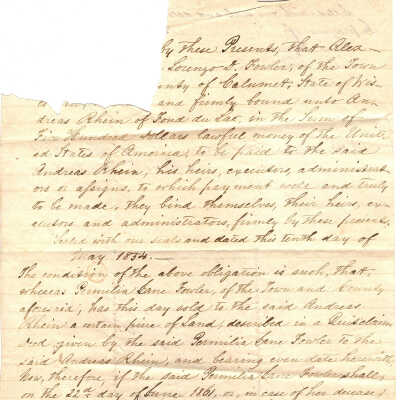 by these Presents, that Alex-
Lorenzo D. Fowler, of the Town
County of Calumet, State of Wis-
and firmly bound unto An-
dreas Rhein of Fond du Lac, in the Sum of
Five Hundred Dollars lawful money of the Unit-
ed States of America, to be paid to the said
Andreas Rhein, his heirs, executors, administrat-
ors or assigns, to which payment well and truly
to be made, they bind themselves, their heirs, ex-
ecutors and administrators, firmly by these presents.
Sealed with our seals and dated this tenth day of
May 1854.—
The condition of the above obligation is such, that,
whereas Permilia Cane Fowler, of the Town and County
aforesaid, has this day sold to the said Andreas
Rhein a certain piece of Land, described in a Quitclaim
Deed given by the said Permilia Cane Fowler to the
said Andreas Rhein, and bearing even date herewith,
Now, therefore, if the said Permilia Cane Fowler shall,
on the 22d day of June 1861, or, in case of her decease,